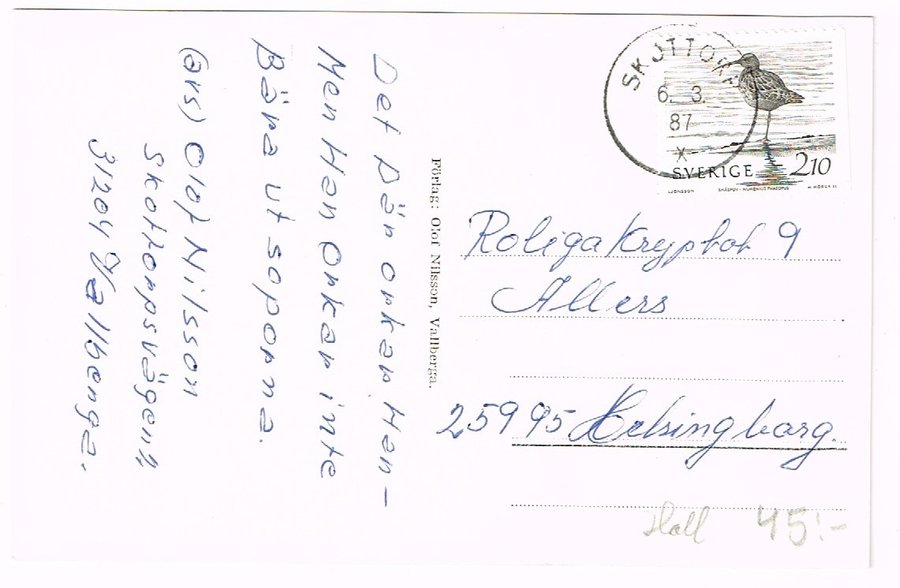 Det Bän onkan Han-
Men Han onkan inte
Bäna ut soponna.
(avs) Olof Nilsson
Skottonpsvägen
31204 Vallbenga.
Förlag: Olof Nilsson, Vallberga.
SKOTTORP
6. 3.
87
X
SVERIGE 2.10
LJONSSON SMÅSPOV - NUMENIUS PHAEOPUS
Roliga Kryptot 9
Allers
25995 Helsingborg.
Hall 45:-